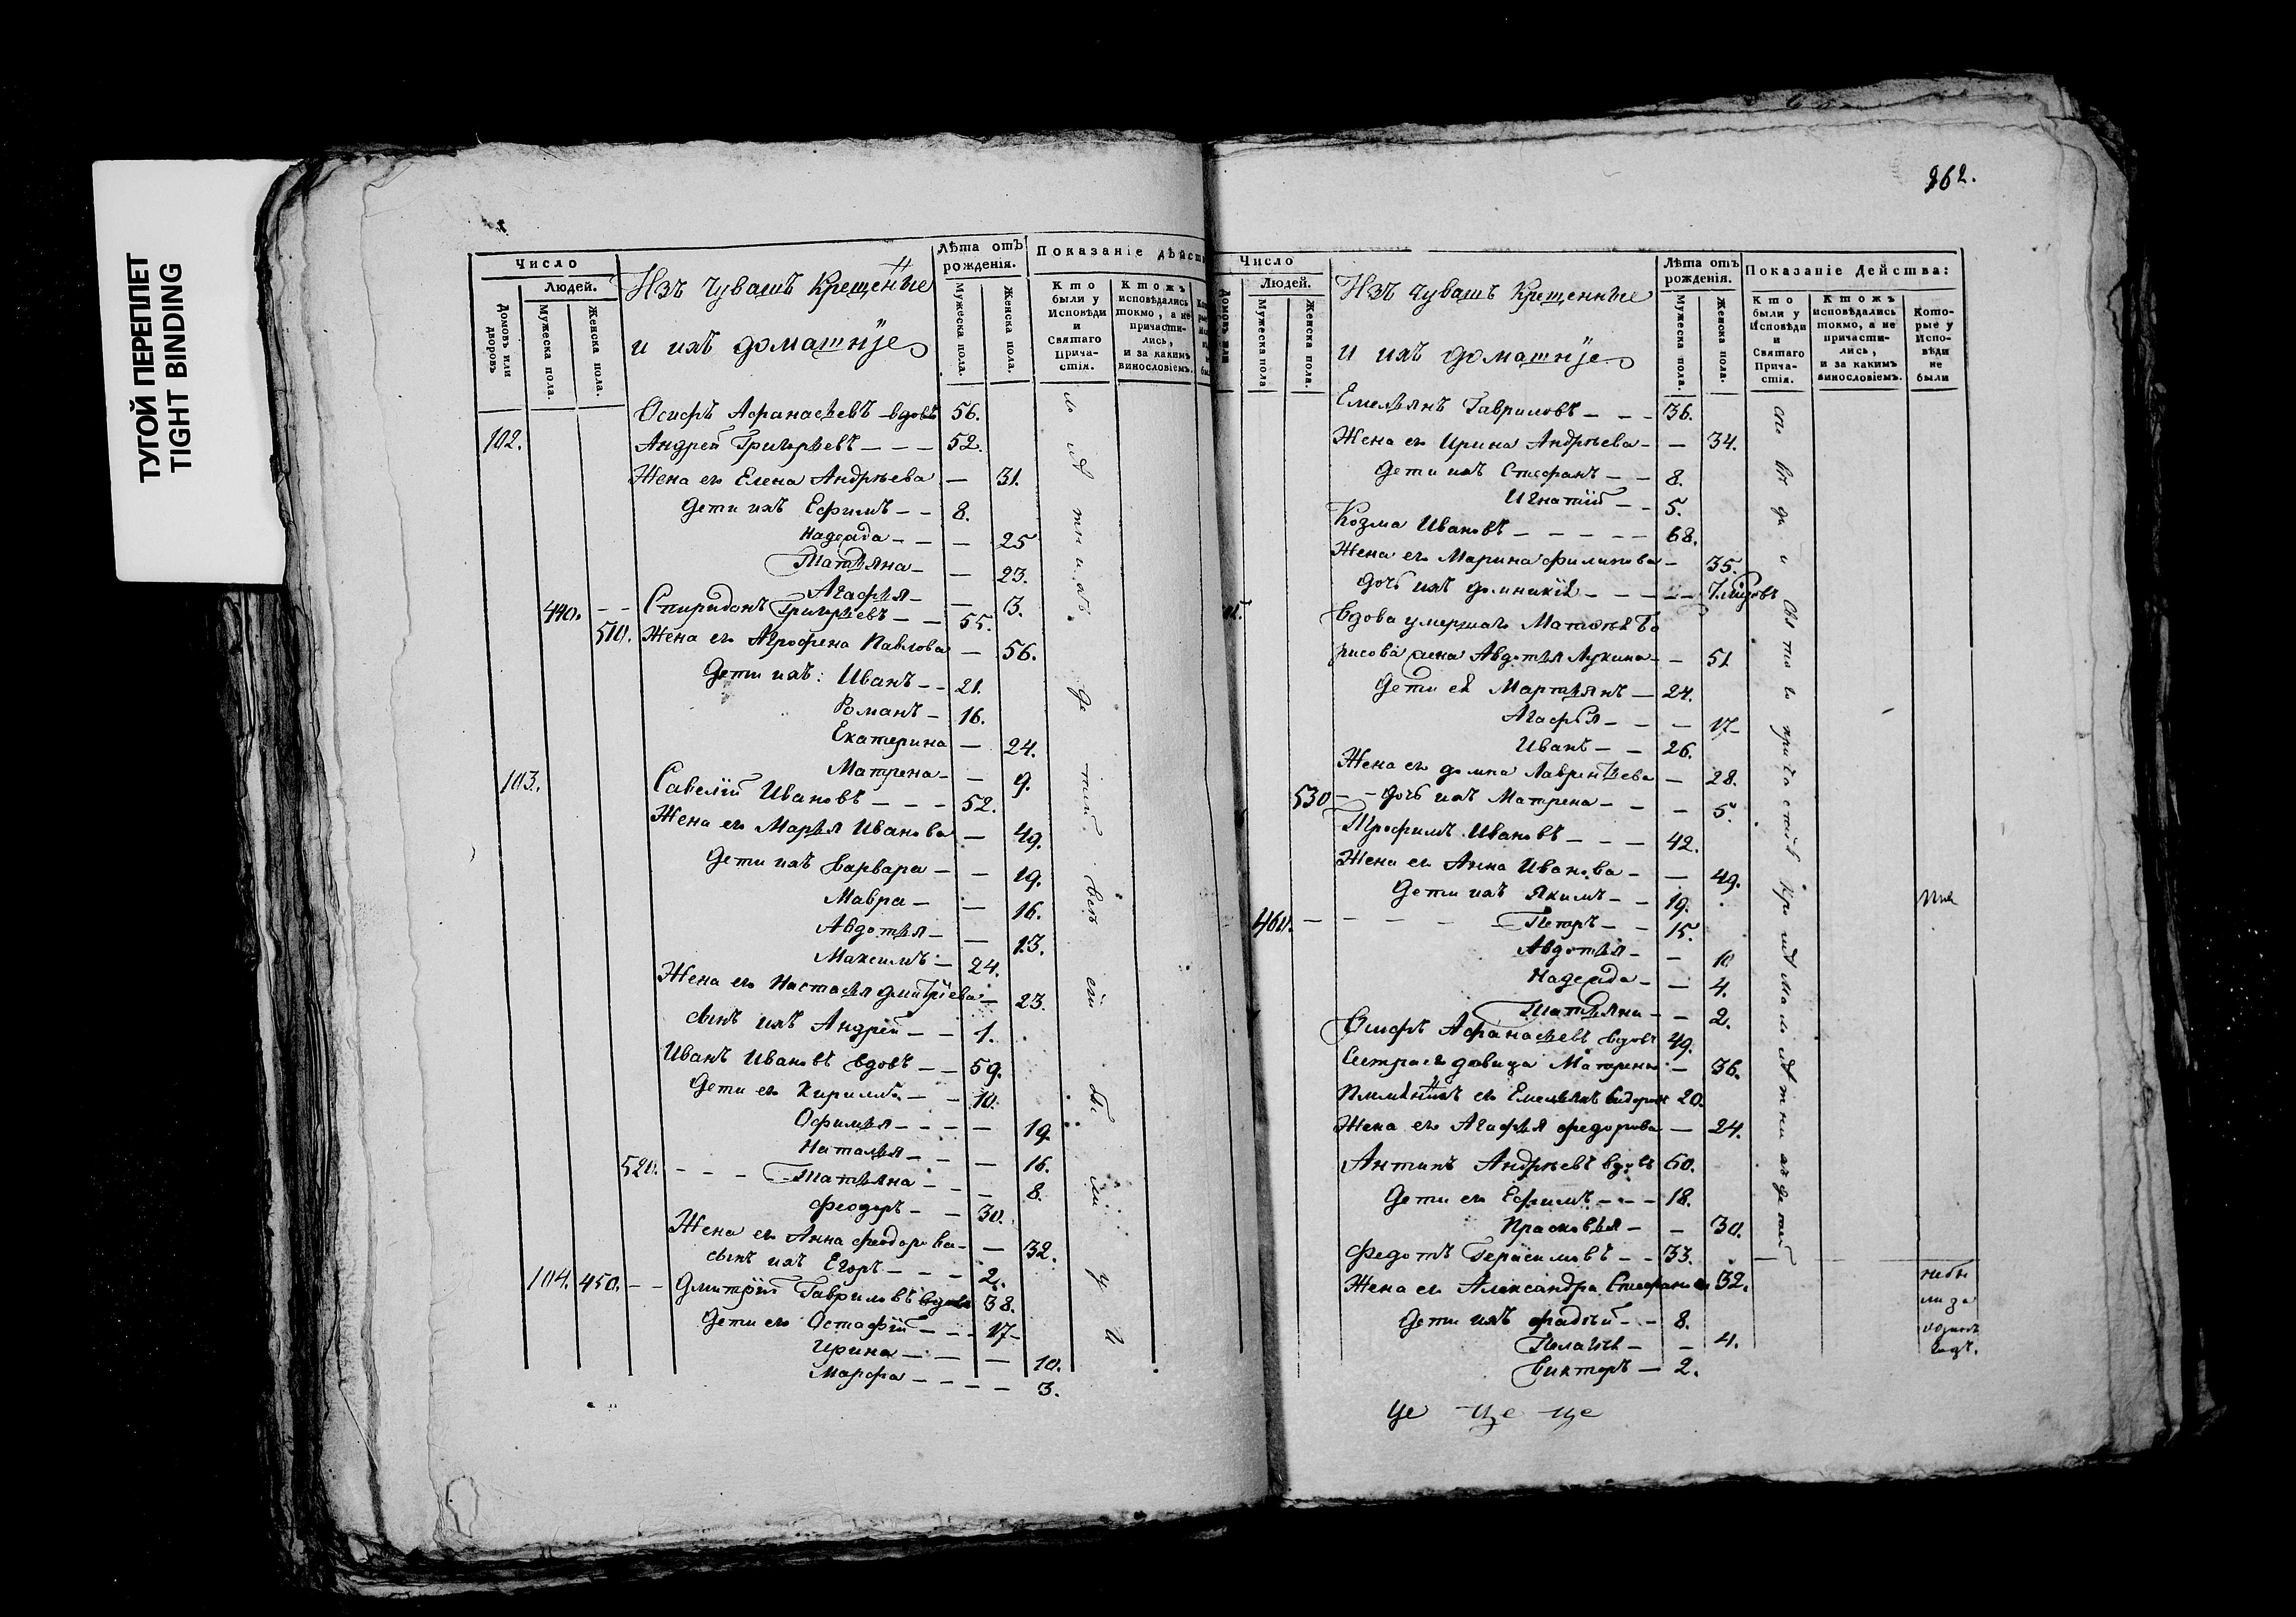 ТУГОЙ ПЕРЕПЛЕТ
TIGHT BINDING
Число
Людей.
Домовъ или дворовъ
Мужеска пола.
Женска пола.
Изъ Чувашъ Крещенные
и ихъ домашніе
Лѣта отъ рожденія.
Мужеска пола.
Женска пола.
Показаніе дѣйст
Кто были у Исповѣди и Святаго Причастія.
Ктожъ исповѣдались токмо, а не причастились, и за какимъ винословіемъ.
Осифъ Афанасьевъ вдовъ 56.
102. Андрей Григорьевъ - - - 52.
Жена его Елена Андрѣева - 31.
Дети ихъ Ефимъ - - 8.
Надежда - - - 25
Татьяна - - 23.
Агафья - - 13.
440. - - Спиридонъ Григорьевъ - - 55.
510. Жена его Агрофена Павлова - 56.
Дети ихъ: Иванъ - - 21.
Романъ - 16.
Екатерина - 24.
Матрена - - 9.
103. Савелій Ивановъ - - - 52.
Жена его Марья Иванова - 49.
Дети ихъ Варвара - - 19.
Мавра - - 16.
Авдотья - - 13.
Максимъ - 24.
Жена его Настасья Дмитріева - 23.
Сынъ ихъ Андрей - - 1.
Иванъ Ивановъ вдовъ - - 59.
Дети его Кирилъ - - 10.
Офимья - - - - 19.
Наталья - - - 16.
520. - - - Татьяна - - - 8.
Феодоръ - - 30.
Жена его Анна Феодорова - - 32.
Сынъ ихъ Егоръ - - - 2.
104. 450. - - Дмитрій Гавриловъ вдовъ 38.
Дети его Остафій - - - 17
Ирина - - - 10.
Марфа - - - - 3.
862.
Число
Людей.
Мужеска пола
Женска пола.
Изъ чувашъ Крещенные
и ихъ домашніе
Лѣта отъ рожденія.
Мужеска пола.
Женска пола.
Показаніе Действа:
Кто были у Исповѣди и Святаго Причастія.
Ктожъ исповѣдались токмо, а не причастились, и за какимъ винословіемъ.
Которые у Исповѣди не были
Емельянъ Гавриловъ - - - 36.
Жена его Ирина Андрѣева - - 34.
Дети ихъ Стефанъ - - 8.
Игнатій - - 5.
Козма Ивановъ - - - - - 68.
Жена его Марина Филипова - 35.
Дочь ихъ - - - - - 7.
Вдова умершаго Матвѣя Бо
рисова жена Авдотья Лукина - - 51
Дети ея Мартьянъ - 24.
Агафья - - - 17
Иванъ - - 26.
Жена его Домна Лаврентьева - 28.
530 - - Дочь ихъ Матрена - - - 5.
Трофимъ Ивановъ - - - 42.
Жена его Анна Иванова - - 49.
Дети ихъ Якимъ - - 19.
460. - - - - - Петръ - - 15.
Авдотья - - 10
Надежда - - 4.
Татьяна - - 2.
Осифъ Афанасьевъ вдовъ 49.
Сестра его девица Матрена - 36.
Племянникъ его Емельянъ 20.
Жена его Агафья Федорова - 24.
Антипъ Андрѣевъ вдовъ 60.
Дети его Ефимъ - - - 18.
Прасковья - - 30.
Федотъ Герасимовъ - - 33.
Жена его Александра Стефанова 32.
Дети ихъ Фадѣй - - 8.
Пелагія - - 4.
Викторъ - 2.
це ще ще